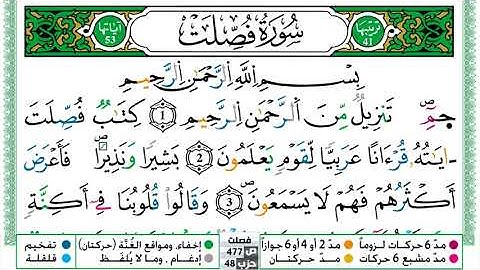 ترتيبها 41 سُورَةُ فُصِّلَتْ آياتها 53
بِسْمِ اللَّهِ الرَّحْمَٰنِ الرَّحِيمِ
حمٓ تَنزِيلٌ مِّنَ الرَّحْمَٰنِ الرَّحِيمِ 1 كِتَٰبٌ فُصِّلَتْ
ءَايَٰتُهُ قُرْءَانًا عَرَبِيًّا لِّقَوْمٍ يَعْلَمُونَ 2 بَشِيرًا وَنَذِيرًا فَأَعْرَضَ
أَكْثَرُهُمْ فَهُمْ لَا يَسْمَعُونَ 3 وَقَالُوا قُلُوبُنَا فِي أَكِنَّةٍ
مدّ 6 حركات لزوماً مدّ 2 أو 4 أو 6 جوازاً فصلت إخفاء، ومواقع الغُنَّة (حركتان) تفخيم
مدّ مشبع 6 حركات مدّ حركتان ص 477 حزب 48 إدغام، وما لا يُلفَظ قلقلة